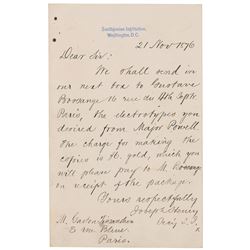 Smithsonian Institution,
Washington, D.C.
21 Nov 1876
Dear Sir:
We shall send in
our next box to Gustave
Bossange 16 rue du 4th Septr.
Paris, the electrotypes you
desired from Major Powell.
The charge for making the
copies is gold, which you
will please pay to M. Bossange
on receipt of the package.
Yours respectfully
Joseph Henry
Secy S. I.
M. Gaston Tissandier
Paris.